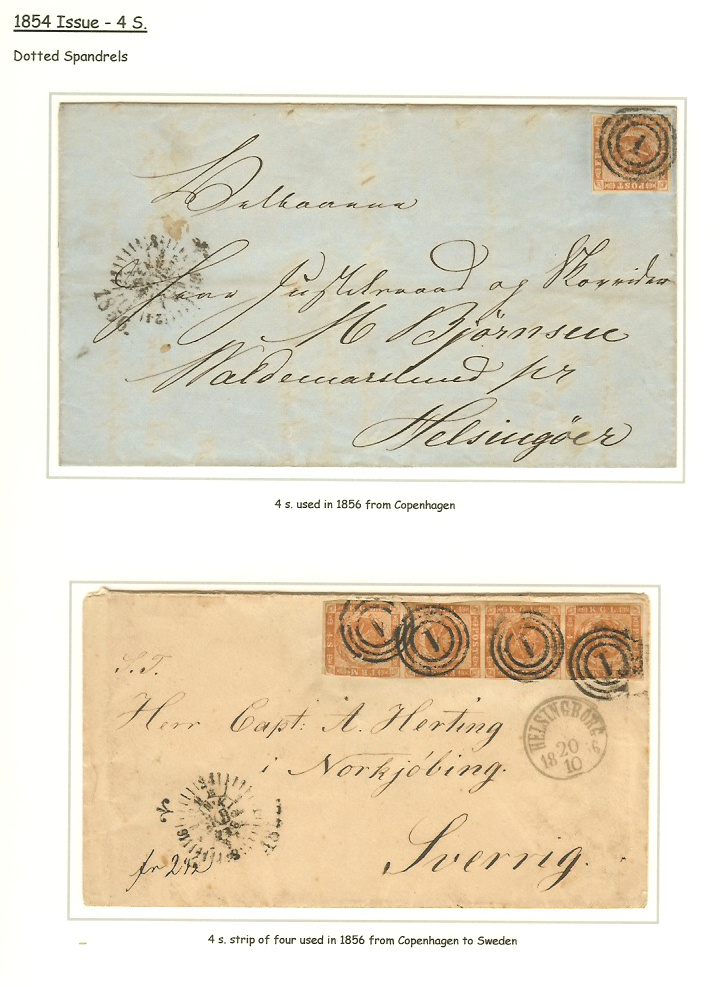 1854 Issue - 4 S.
Dotted Spandrels
1
POST
Velbaarne
Herr Justitsraad og Korrider
M Bjørnsen
Waldemarslund pr
Helsingöer
4 s. used in 1856 from Copenhagen
1 1 1 1
K G L
S. T.
Herr Capt: A. Herting
i Norkjöbing.
Sverrig.
HELSINGBORG
18 20 56
10
fr 242
4 s. strip of four used in 1856 from Copenhagen to Sweden